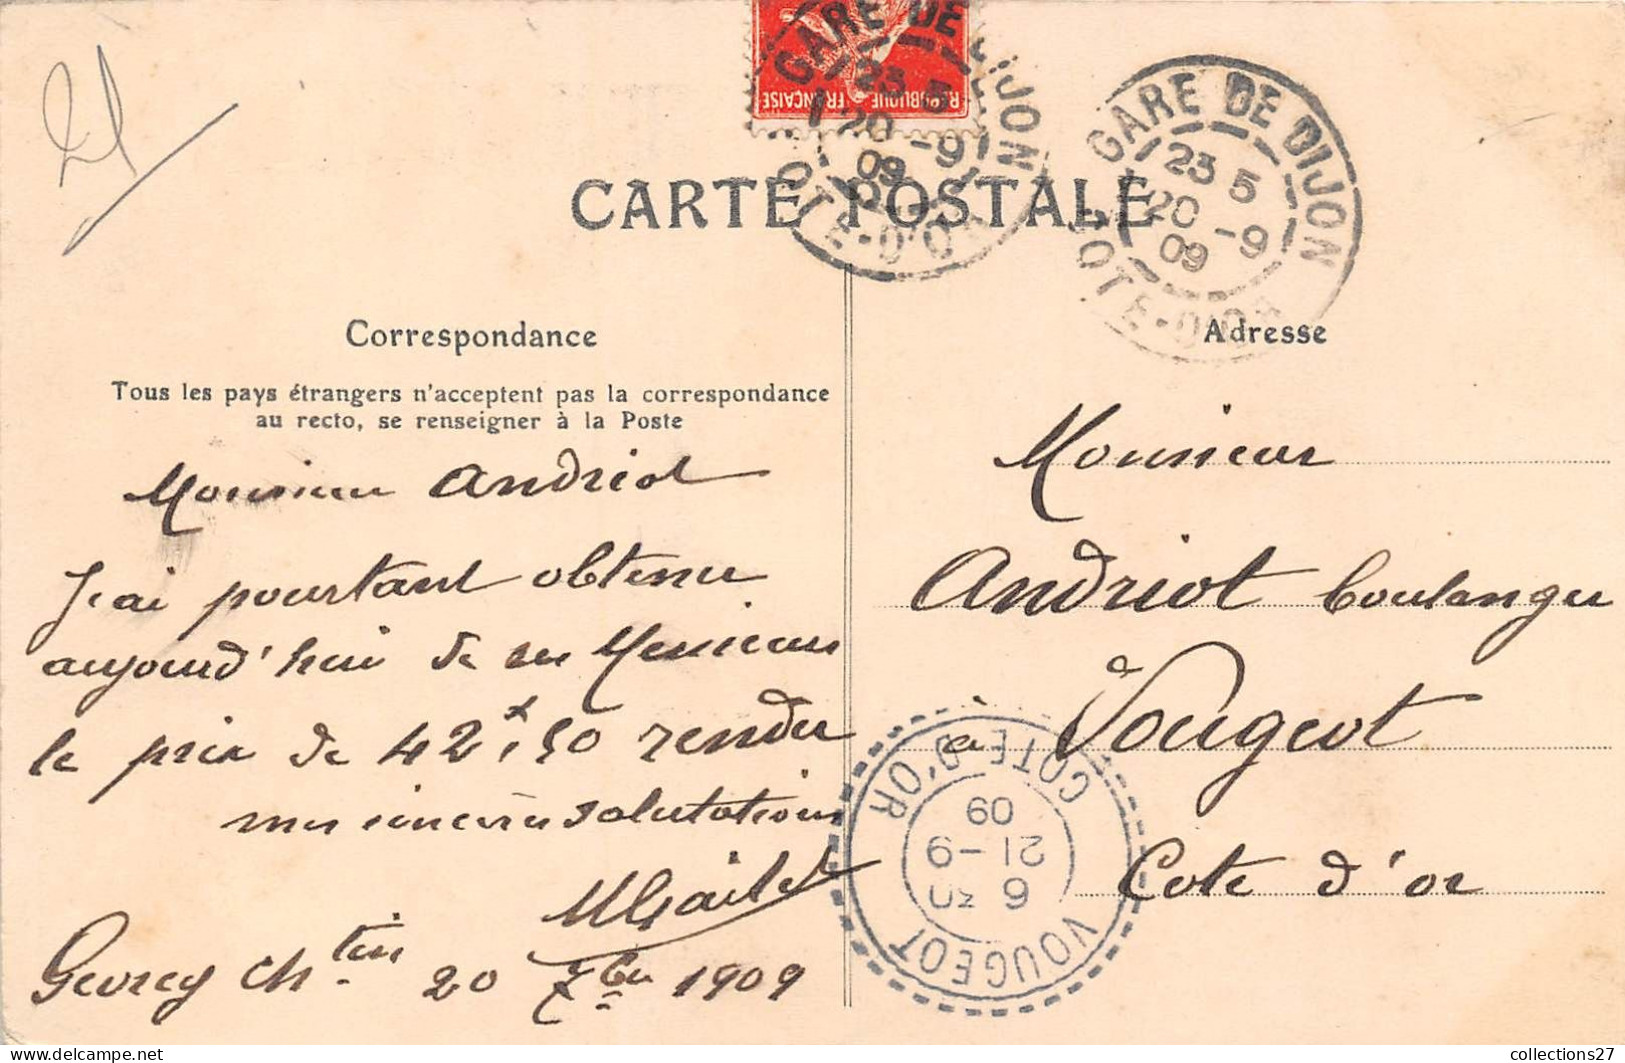 21
RÉPUBLIQUE FRANÇAISE
GARE DE DIJON
23 5
20 -9
09
COTE-D'OR
GARE DE DIJON
23 5
20 -9
09
COTE-D'OR
CARTE POSTALE
Correspondance
Tous les pays étrangers n'acceptent pas la correspondance
au recto, se renseigner à la Poste
Monsieur Andriot
J'ai pourtant obtenu
aujourd'hui de ces Messieurs
le prix de 42f,50 rendu
mes sincères salutations
Gevrey Ch.tin 20 7bre 1909
Adresse
Monsieur
Andriot boulanger
à Vougeot
Cote d'or
VOUGEOT
6 30
21-9
09
COTE D'OR
collections27